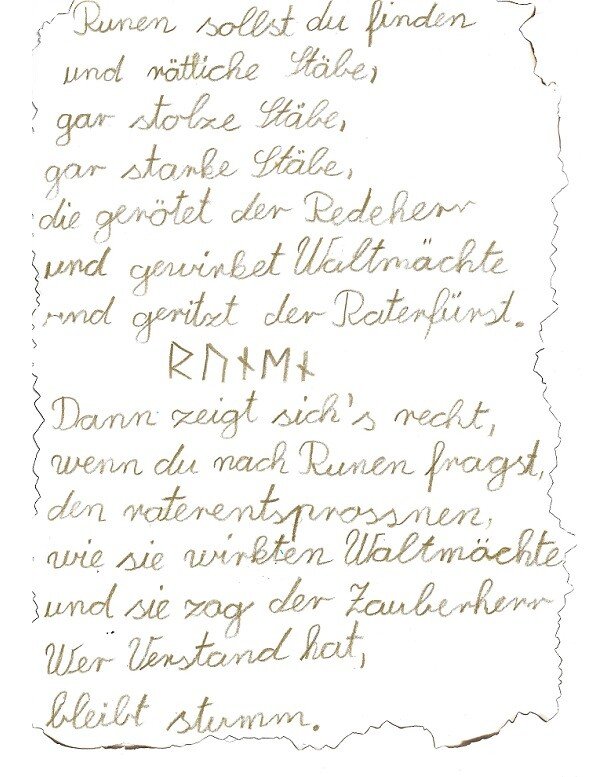 Runen sollst du finden
und rätliche Stäbe,
gar stolze Stäbe,
gar starke Stäbe,
die gerötet der Redeherr
und gewirket Waltmächte
und geritzt der Raterfürst.
ᚱᚢᚾᛖᚾ
Dann zeigt sich's recht,
wenn du nach Runen fragst,
den raterentsprossnen,
wie sie wirkten Waltmächte
und sie zog der Zauberherr
Wer Verstand hat,
bleibt stumm.